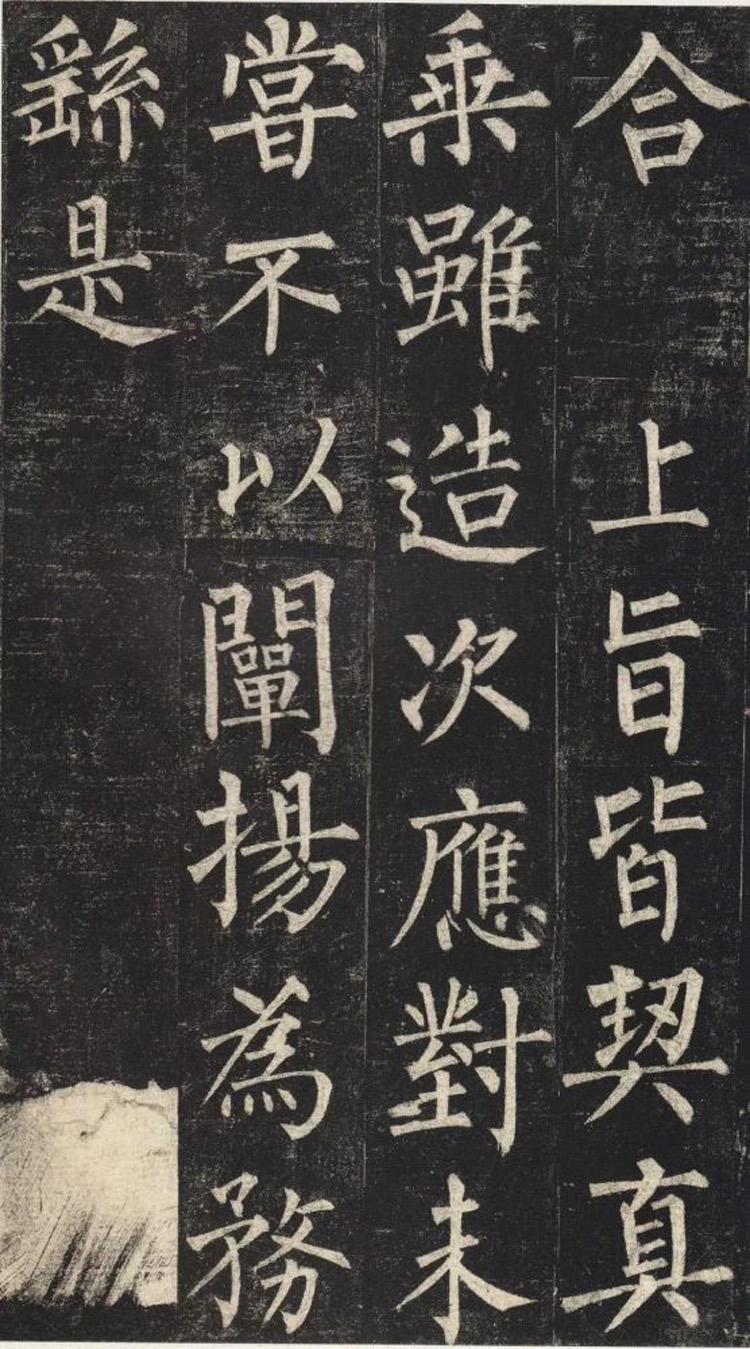 合　上旨皆契真
乘雖造次應對未
嘗不以闡揚為務
繇是